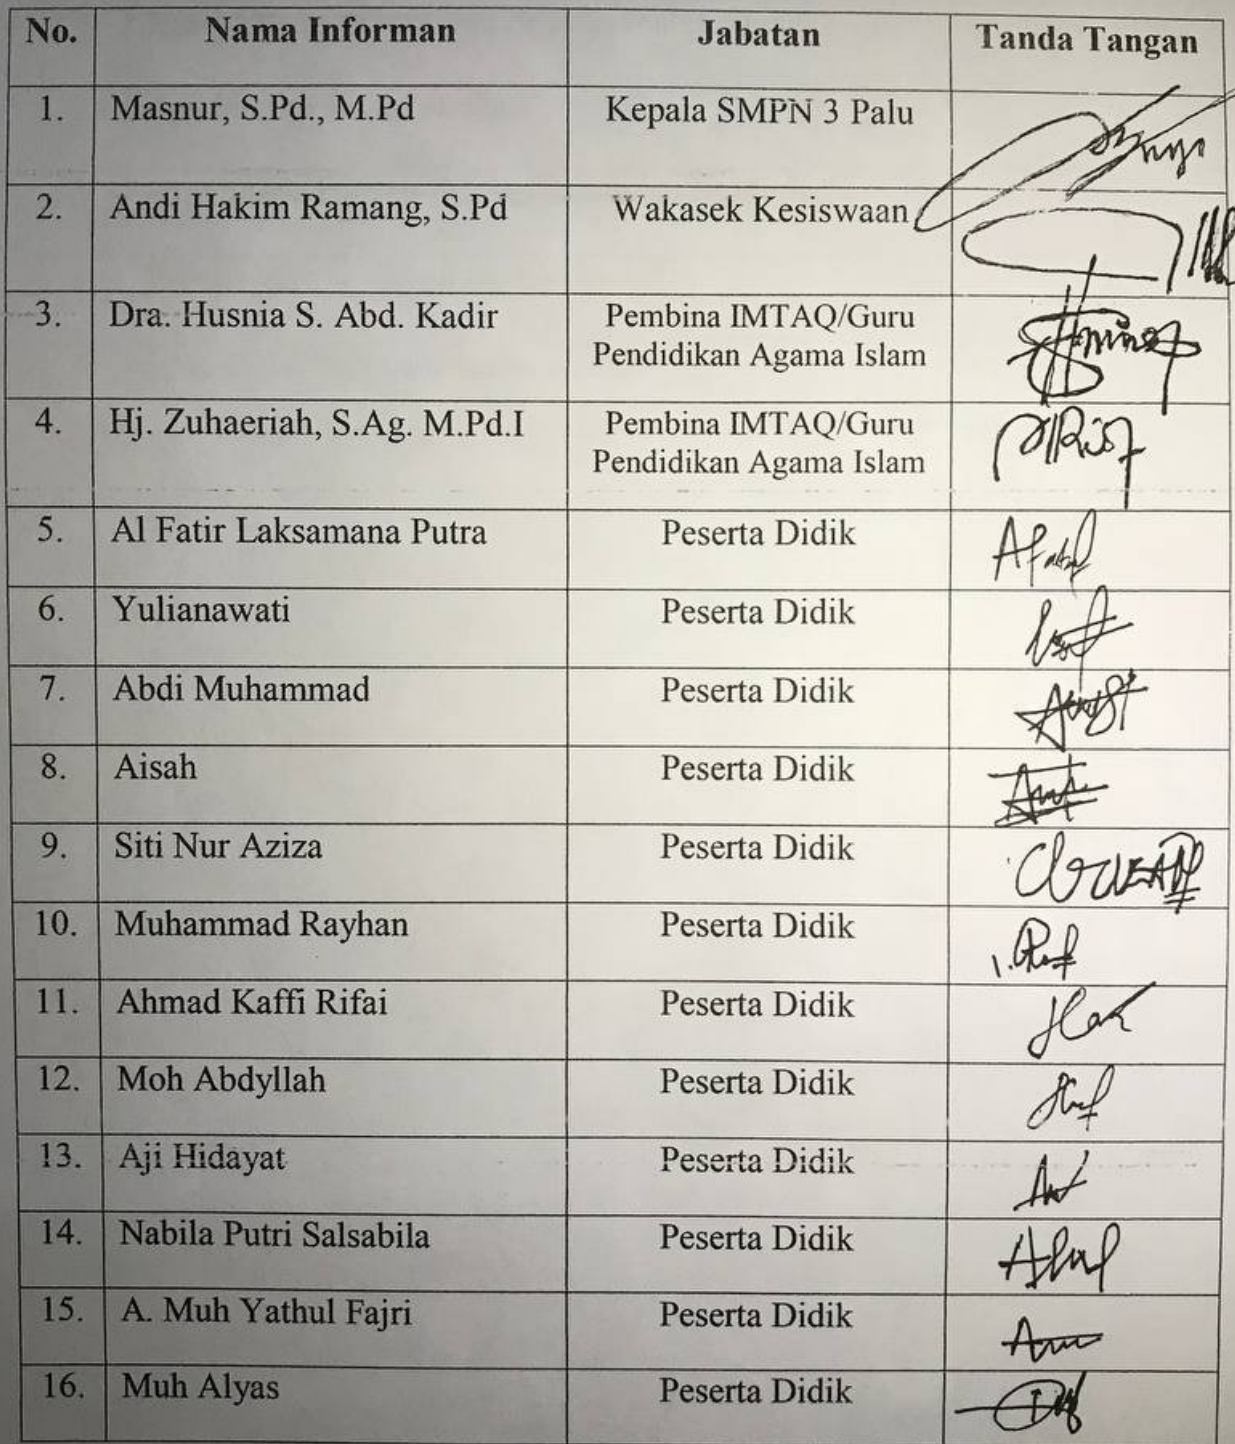 No. Nama Informan Jabatan Tanda Tangan
1. Masnur, S.Pd., M.Pd Kepala SMPN 3 Palu
2. Andi Hakim Ramang, S.Pd Wakasek Kesiswaan
3. Dra. Husnia S. Abd. Kadir Pembina IMTAQ/Guru
Pendidikan Agama Islam
4. Hj. Zuhaeriah, S.Ag. M.Pd.I Pembina IMTAQ/Guru
Pendidikan Agama Islam
5. Al Fatir Laksamana Putra Peserta Didik
6. Yulianawati Peserta Didik
7. Abdi Muhammad Peserta Didik
8. Aisah Peserta Didik
9. Siti Nur Aziza Peserta Didik
10. Muhammad Rayhan Peserta Didik
11. Ahmad Kaffi Rifai Peserta Didik
12. Moh Abdyllah Peserta Didik
13. Aji Hidayat Peserta Didik
14. Nabila Putri Salsabila Peserta Didik
15. A. Muh Yathul Fajri Peserta Didik
16. Muh Alyas Peserta Didik